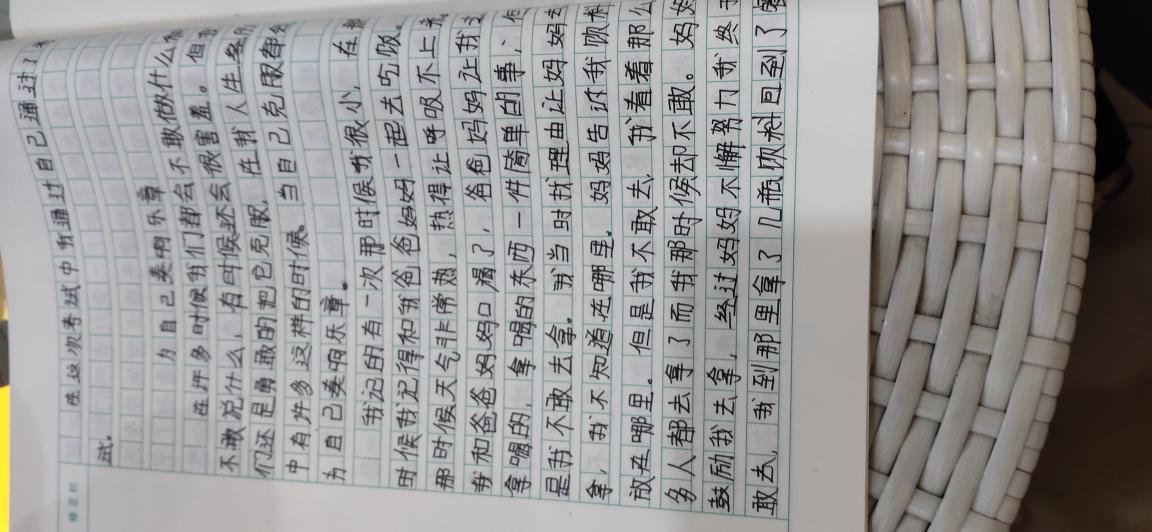 修正栏
在这次考试中我通过自己通过了考
试。
为自己奏响乐章
在许多时候我们都会不敢做什么
不敢说什么,有时候还会很害羞。但
们还是勇敢的把它克服,在我人生
中有许多这样的时候。当自己克服
为自己奏响乐章。
我记的有一次那时候我很小,在
时候我记得和我爸爸妈妈一起去吃饭。
那时候天气非常热,热得让呼吸不上
我和爸爸妈妈口渴了,爸爸妈妈让我
拿喝的,拿喝的东西一件简单的事,但
是我不敢去拿。我当时找理由让妈妈
拿,我不知道在哪里。妈妈告诉我饮料
放在哪里。但是我不敢去,我看着那么
多人都去拿了而我那时候却不敢。妈妈
鼓励我去拿,经过妈妈不懈努力我终于
敢去,我到那里拿了几瓶饮料回到了